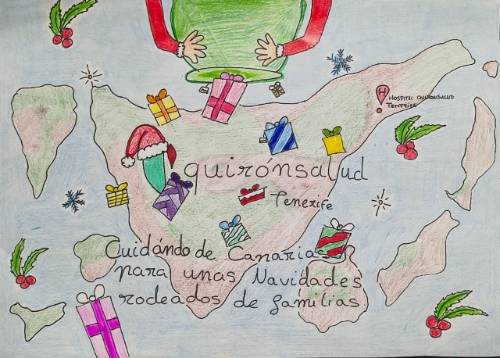 HOSPITAL QUIRONSALUD
TENERIFE
quirónsalud
Tenerife
Cuidándo de Canarias
para unas Navidades
rodeados de familias